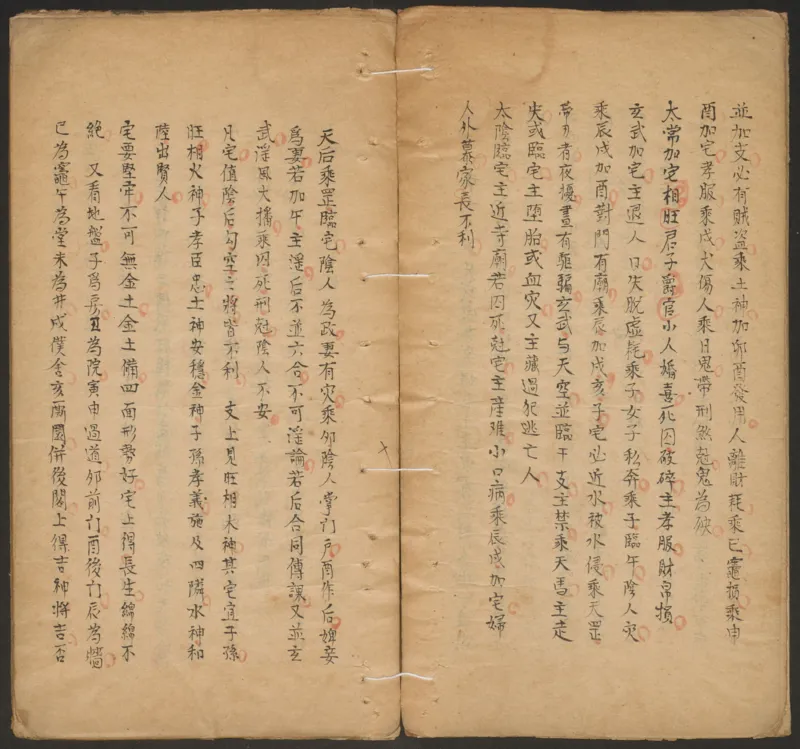 並加支必有賊盗乘土神加卯酉發用人離財耗乘巳竈損乘申
酉加宅孝服乘戌犬傷人乘日鬼帶刑煞尅鬼為殃
太常加宅相旺君子爵官小人婚喜死囚破碎主孝服財帛損
玄武加宅主退人口失脫虛耗乘子女子私奔乘子臨午陰人灾
乘辰戌加酉對門有廟乘辰加戌亥子宅必近水被水侵乘天罡
帶刃者夜擾晝有驅竊玄武与天空並臨干支主禁乘天馬主走
失或臨宅主墮胎或血灾又主藏過犯逃亡人
太陰臨宅主近寺廟若囚死尅宅主産难小口病乘辰戌加宅婦
人外慕家長不利
天后乘罡臨宅陰人為政妻有灾乘卯陰人掌门户酉作后婢妾
爲妻若加午主滛后不並六合不可滛論若后合同傳讓又並玄
武滛風大播乘囚死刑尅陰人不安
凡宅值陰后勾空之將皆不利 支上見旺相木神其宅宜子孫
旺相火神子孝臣忠土神安穩金神子孫孝義施及四隣水神和
陸出賢人
宅要堅牢不可無金土金土備四面形勢好宅上得長生綿綿不
絶 又看地盤子爲房丑为院寅申過道卯前门酉後门辰為牆
巳為竈午为堂未為井戌僕舍亥厠圂併後閣上得吉神将吉否